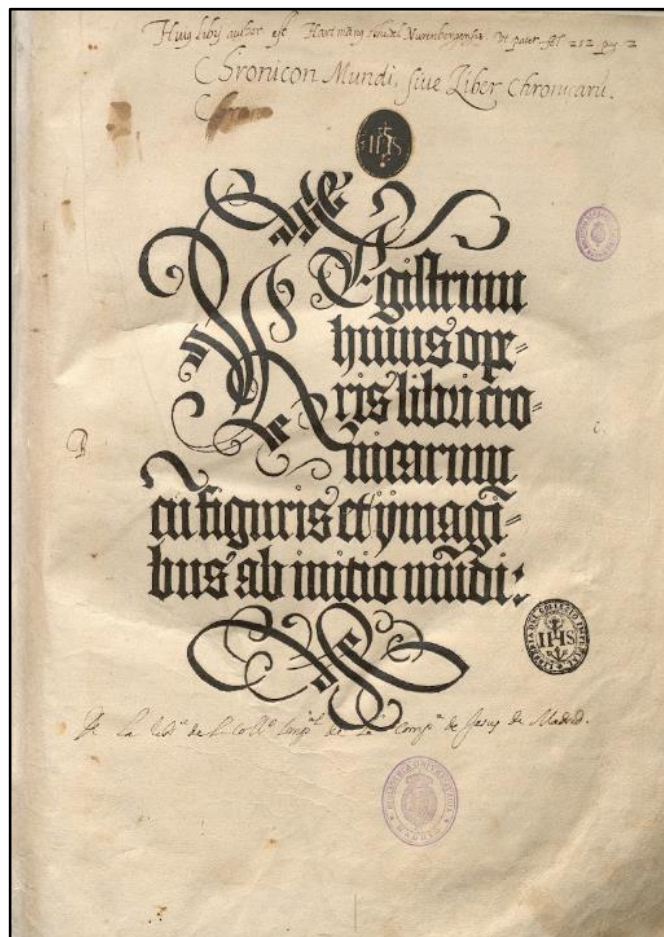 Huiq libri author est Hartmanq schedel Nurenbergensis. Ut patet fol 252 pag 2
Chronicon Mundi, sive Liber Chronicarũ.
IHS
REgistrum
huius ope-
ris libri cro-
nicarum
cũ figuris et ymagĩ-
bus ab initio mũdi:
IHS
De la de de Jesus de Madrid.